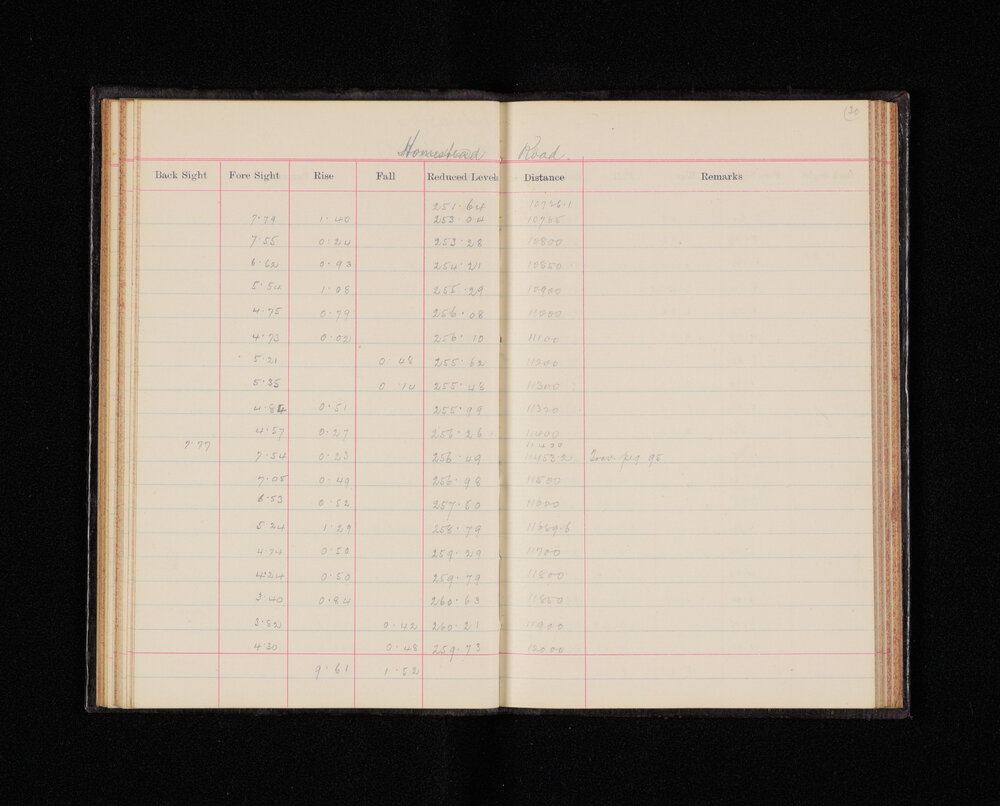 (20
Homestead Road.
Back Sight Fore Sight Rise Fall Reduced Level Distance Remarks
251.64 10726.1
7.79 1.40 253.04 10765
7.55 0.24 253.28 10800
6.62 0.93 254.21 10850
5.54 1.08 255.29 10900
4.75 0.79 256.08 11000
4.73 0.02 256.10 11100
5.21 0.48 255.62 11200
5.35 0.14 255.48 11300
4.84 0.51 255.99 11320
4.57 0.27 256.26 11400
7.77 11420
7.54 0.23 256.49 11453.2 Trav. peg 95
7.05 0.49 256.98 11500
6.53 0.52 257.50 11600
5.24 1.29 258.79 11669.6
4.74 0.50 259.29 11700
4.24 0.50 259.79 11800
3.40 0.84 260.63 11850
3.82 0.42 260.21 11900
4.30 0.48 259.73 12000
9.61 1.52